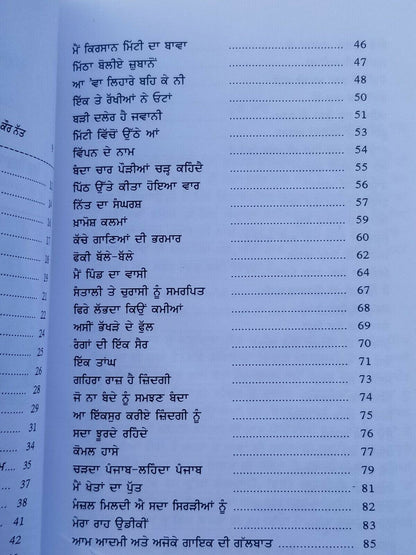 ਕੌਰ ਨੱਤ
9
12
14
16
17
18
19
21
22
24
25
26
28
29
31
34
ਮ.... 35
36
ਮੈਂ ਕਿਰਸਾਨ ਮਿੱਟੀ ਦਾ ਬਾਵਾ 46
ਮਿੱਠਾ ਬੋਲੀਏ ਜ਼ੁਬਾਨੋਂ 47
ਆ 'ਵਾ ਲਿਹਾਰੇ ਬਹਿ ਕੇ ਨੀ 48
ਇੱਕ ਤੇ ਰੱਖੀਆਂ ਨੇ ਓਟਾਂ 50
ਬੜੀ ਦਲੇਰ ਹੈ ਜਵਾਨੀ 51
ਮਿੱਟੀ ਵਿੱਚੋਂ ਉੱਠੇ ਆਂ 53
ਵਿੱਪਨ ਦੇ ਨਾਮ 54
ਬੰਦਾ ਚਾਰ ਪੌੜੀਆਂ ਚੜ੍ਹ ਕਹਿੰਦੈ 55
ਪਿੱਠ ਉੱਤੇ ਕੀਤਾ ਹੋਇਆ ਵਾਰ 56
ਨਿੱਤ ਦਾ ਸੰਘਰਸ਼ 57
ਖ਼ਾਮੋਸ਼ ਕਲਮਾਂ 59
ਕੱਚੇ ਗਾਣਿਆਂ ਦੀ ਭਰਮਾਰ 60
ਫੋਕੀ ਬੱਲੇ-ਬੱਲੇ 62
ਮੈਂ ਪਿੰਡ ਦਾ ਵਾਸੀ 64
ਸੰਤਾਲੀ ਤੇ ਚੁਰਾਸੀ ਨੂੰ ਸਮਰਪਿਤ 67
ਫਿਰੇਂ ਲੱਭਦਾ ਕਿਉਂ ਕਮੀਆਂ 68
ਅਸੀਂ ਭੱਖੜੇ ਦੇ ਫੁੱਲ 69
ਰੰਗਾਂ ਦੀ ਇੱਕ ਸੈਰ 70
ਇੱਕ ਤਾਂਘ 71
ਗਹਿਰਾ ਰਾਜ਼ ਹੈ ਜ਼ਿੰਦਗੀ 73
ਜੋ ਨਾ ਬੰਦੇ ਨੂੰ ਸਮਝਣ ਬੰਦਾ 74
ਆ ਇੱਕਸੁਰ ਕਰੀਏ ਜ਼ਿੰਦਗੀ ਨੂੰ 75
ਸਦਾ ਝੂਰਦੇ ਰਹਿੰਦੇ 76
ਕੋਮਲ ਹਾਸੇ 77
ਚੜਦਾ ਪੰਜਾਬ-ਲਹਿੰਦਾ ਪੰਜਾਬ 79
ਮੈਂ ਖੇਤਾਂ ਦਾ ਪੁੱਤ 81
ਮੰਜ਼ਲ ਮਿਲਦੀ ਐ ਸਦਾ ਸਿਰੜੀਆਂ ਨੂੰ 82
ਮੇਰਾ ਰਾਹ ਉਡੀਕੀਂ 83
ਆਮ ਆਦਮੀ ਅਤੇ ਅਜੋਕੇ ਗਾਇਕ ਦੀ ਗੱਲਬਾਤ 85